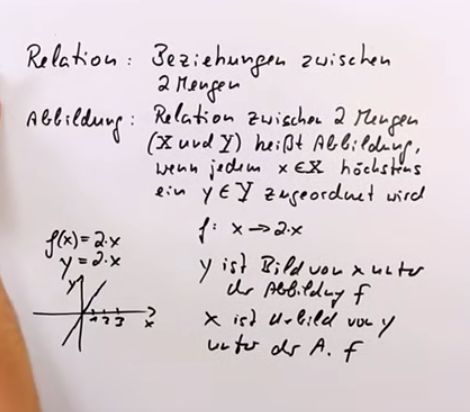 Relation: Beziehungen zwischen
2 Mengen
Abbildung: Relation zwischen 2 Mengen
(X und Y) heißt Abbildung,
wenn jedem x ∈ X höchstens
ein y ∈ Y zugeordnet wird
f(x) = 2·x
y = 2·x
y
1 2 3
x
f: x → 2·x
y ist Bild von x unter
der Abbildung f
x ist Urbild von y
unter der A. f